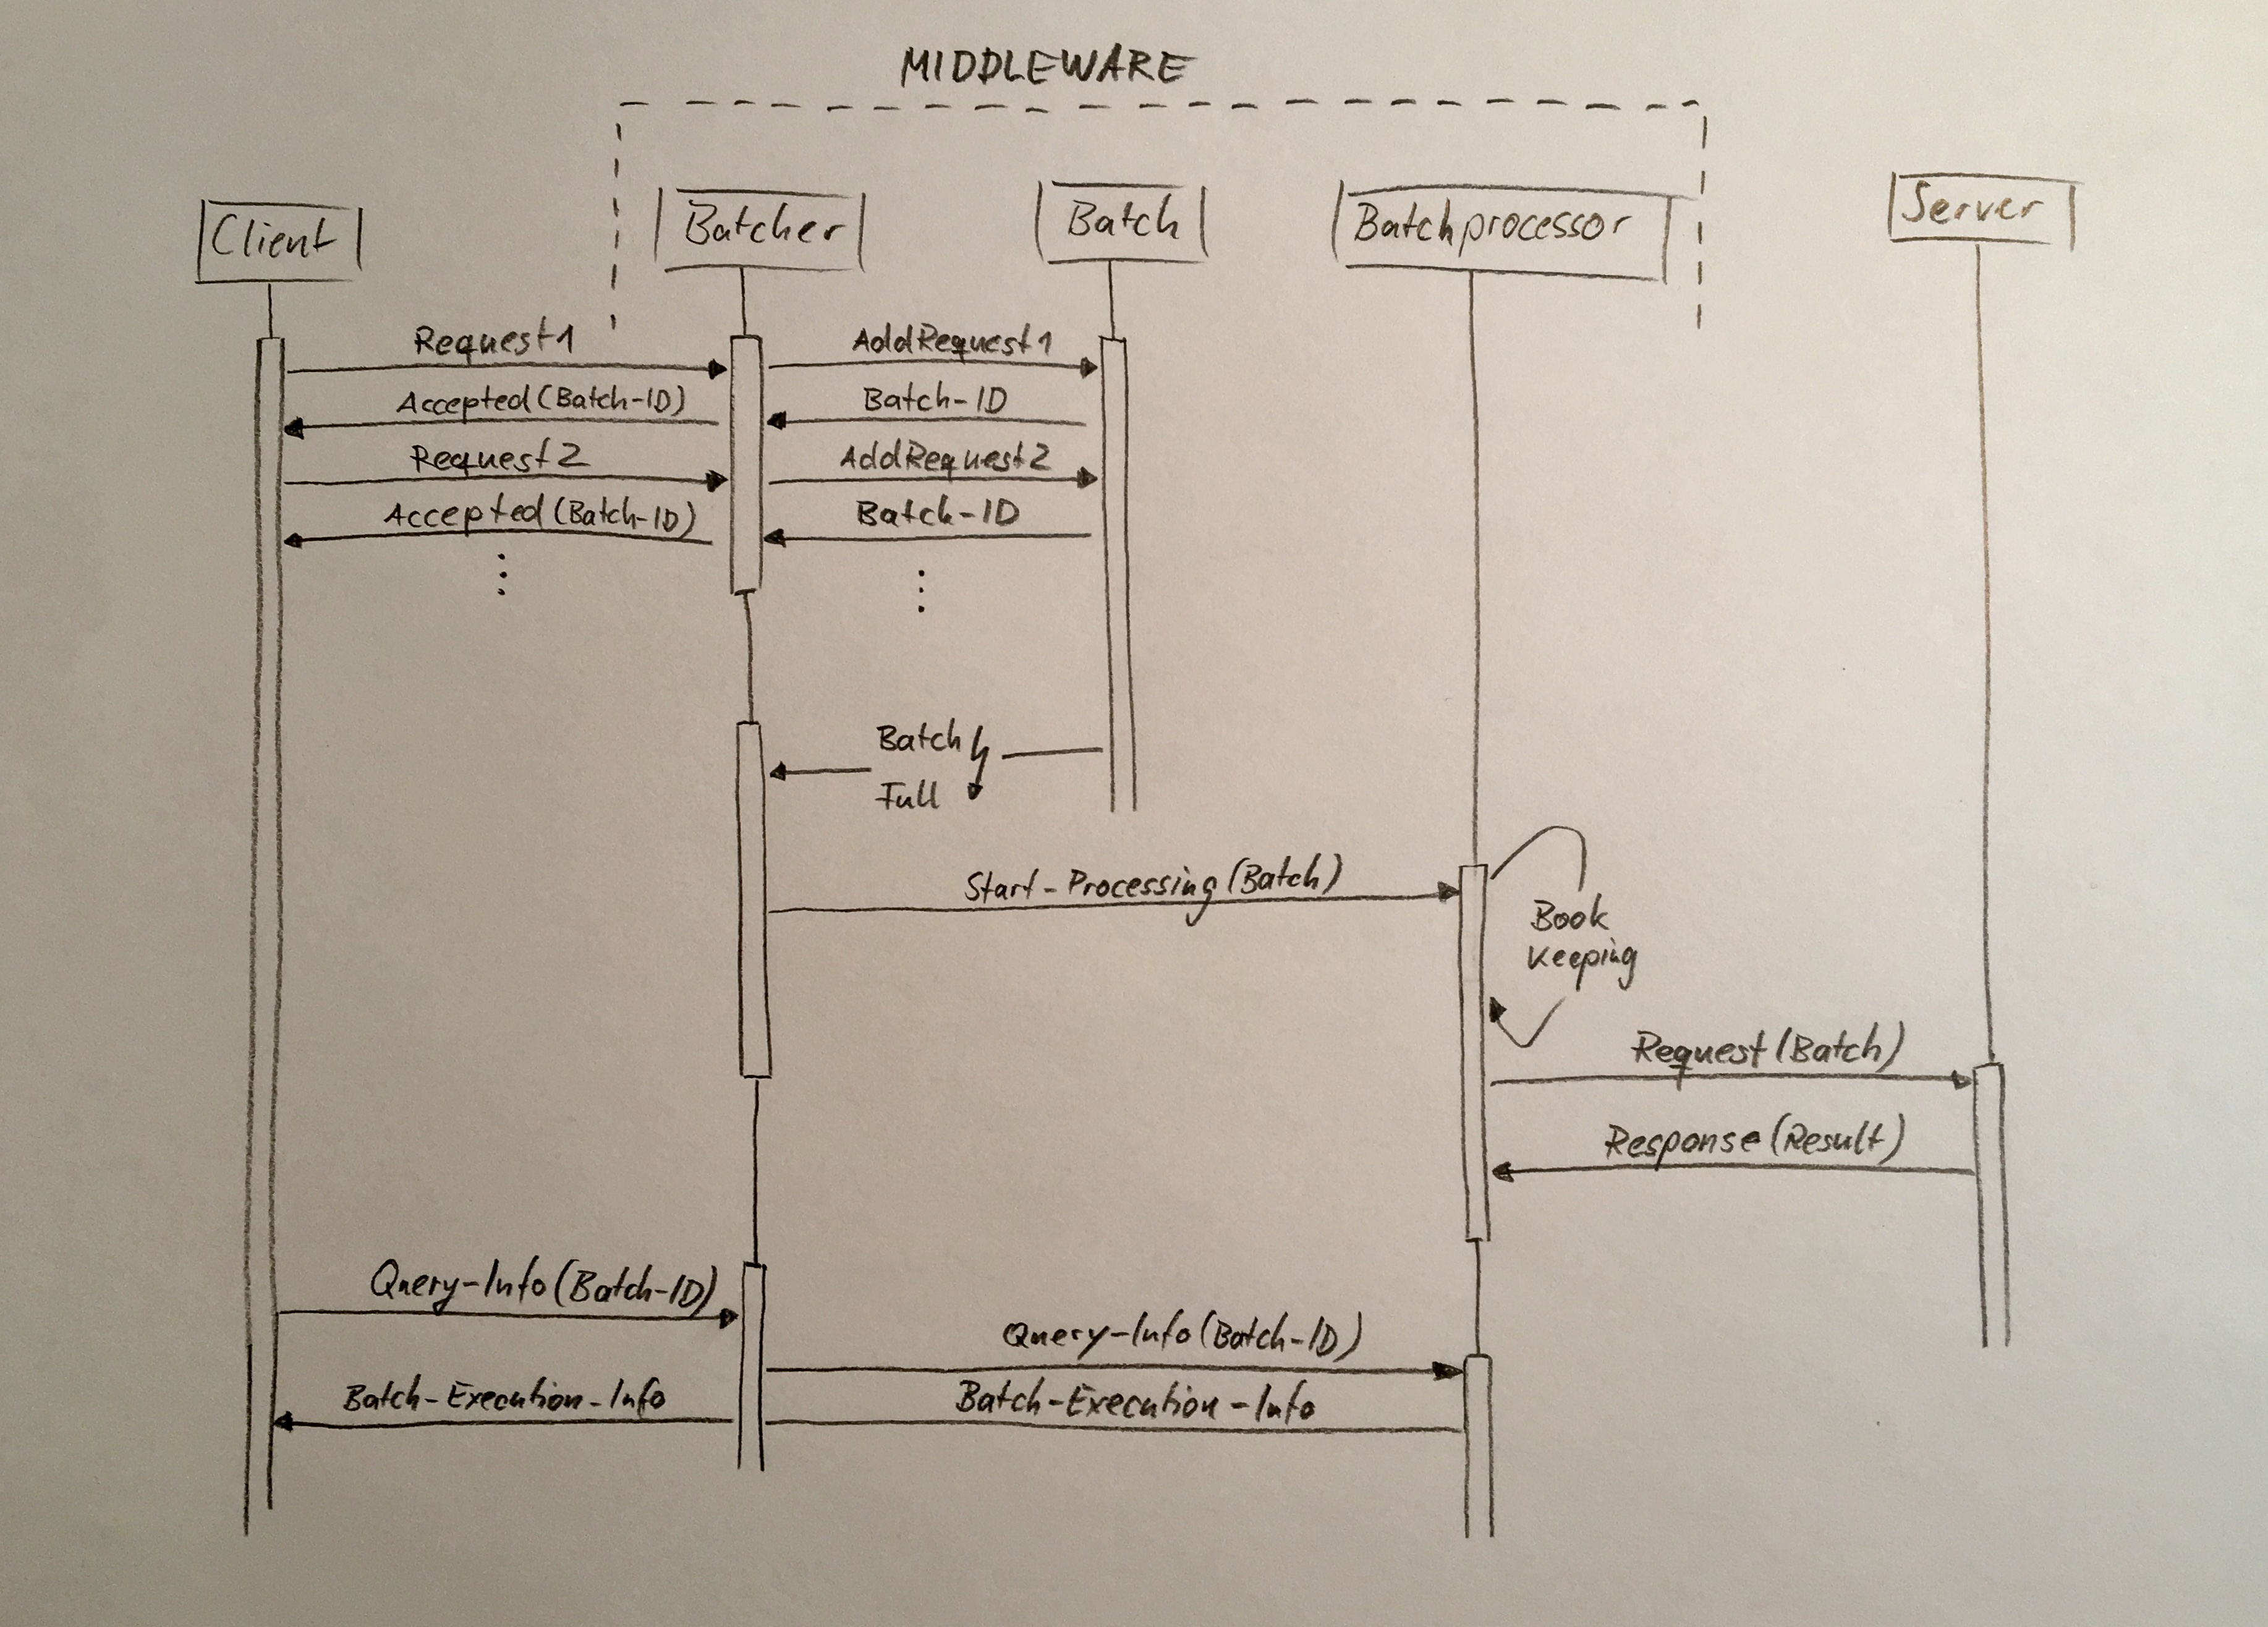 MIDDLEWARE
Client
Batcher
Batch
Batchprocessor
Server
Request1
AddRequest1
Accepted(Batch-ID)
Batch-ID
Request2
AddRequest2
Accepted(Batch-ID)
Batch-ID
Batch
Full
Start-Processing(Batch)
Book
Keeping
Request(Batch)
Response(Result)
Query-Info(Batch-ID)
Query-Info(Batch-ID)
Batch-Execution-Info
Batch-Execution-Info